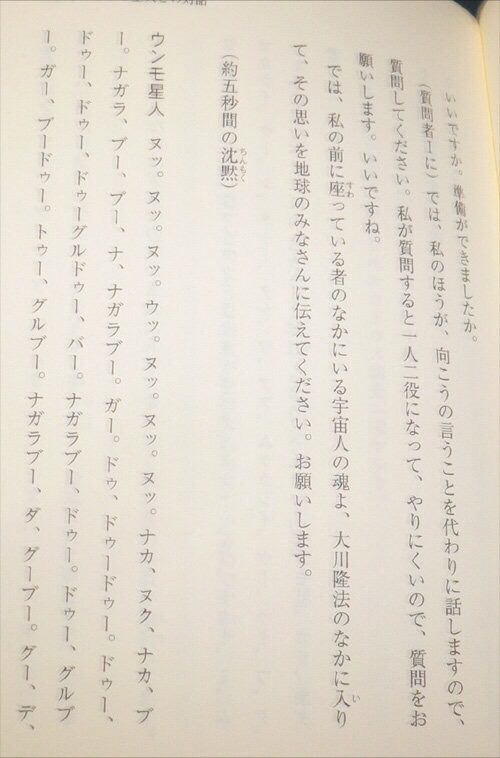 いいですか。準備ができましたか。
（質問者Ｉに）では、私のほうが、向こうの言うことを代わりに話しますので、
質問してください。私が質問すると一人二役になって、やりにくいので、質問をお
願いします。いいですね。
では、私の前に座っている者のなかにいる宇宙人の魂よ、大川隆法のなかに入り
て、その思いを地球のみなさんに伝えてください。お願いします。
（約五秒間の沈黙）
ウンモ星人　ヌッ。ヌッ。ウッ。ヌッ。ヌッ。ナカ、ヌク、ナカ、ブ
ー。ナガラ、ブー、ブー、ナ、ナガラブー。ガー。ドゥ、ドゥードゥー。ドゥー、
ドゥー、ドゥー、ドゥーグルドゥー、バー。ナガラブー、ドゥー。ドゥー、グルブ
ー。ガー、ブードゥー。トゥー、グルブー。ナガラブー、ダ、グーブー。グー、デ、